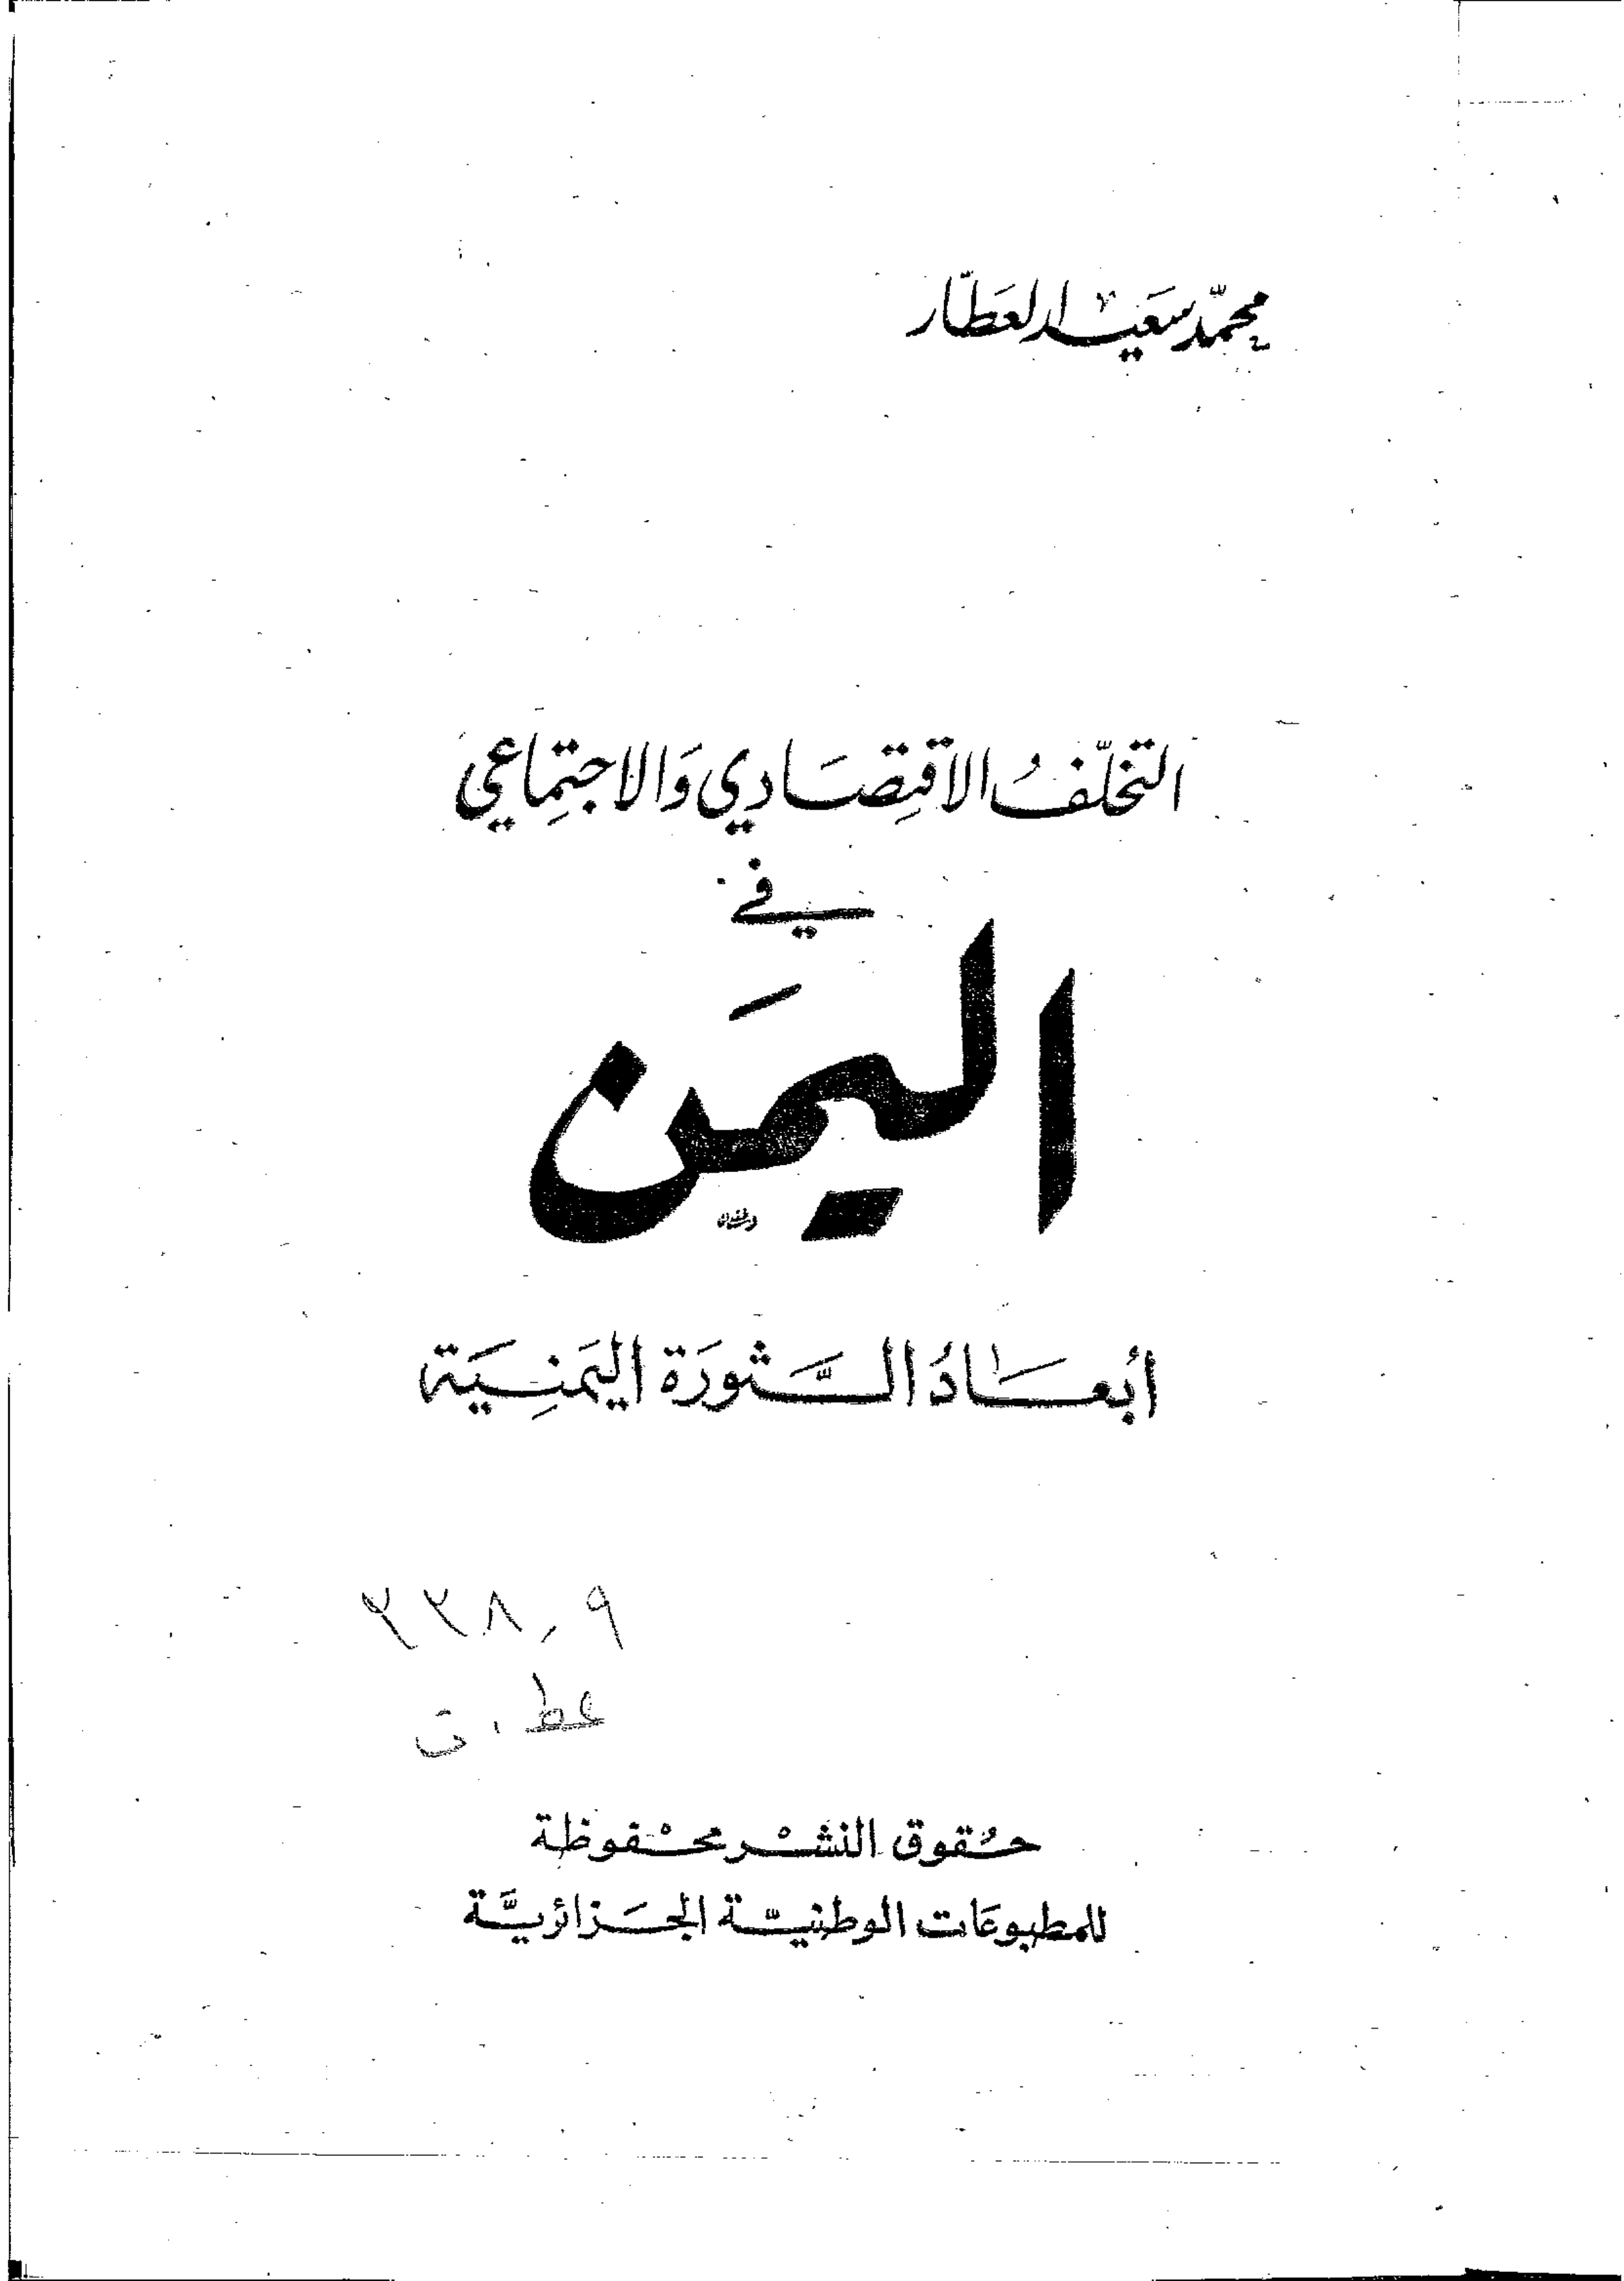 محمّد سَعيد العَطّار
التخلّفُ الاقتِصَادي وَالاجتِماعي
في
اليمَن
أبعَادُ الثَّورَة اليَمنِيَة
٣٣٨,٩
عط . ت
حُقوق النشْر محْفوظة
للمطبوعَات الوطنيّة الجَزائريَّة